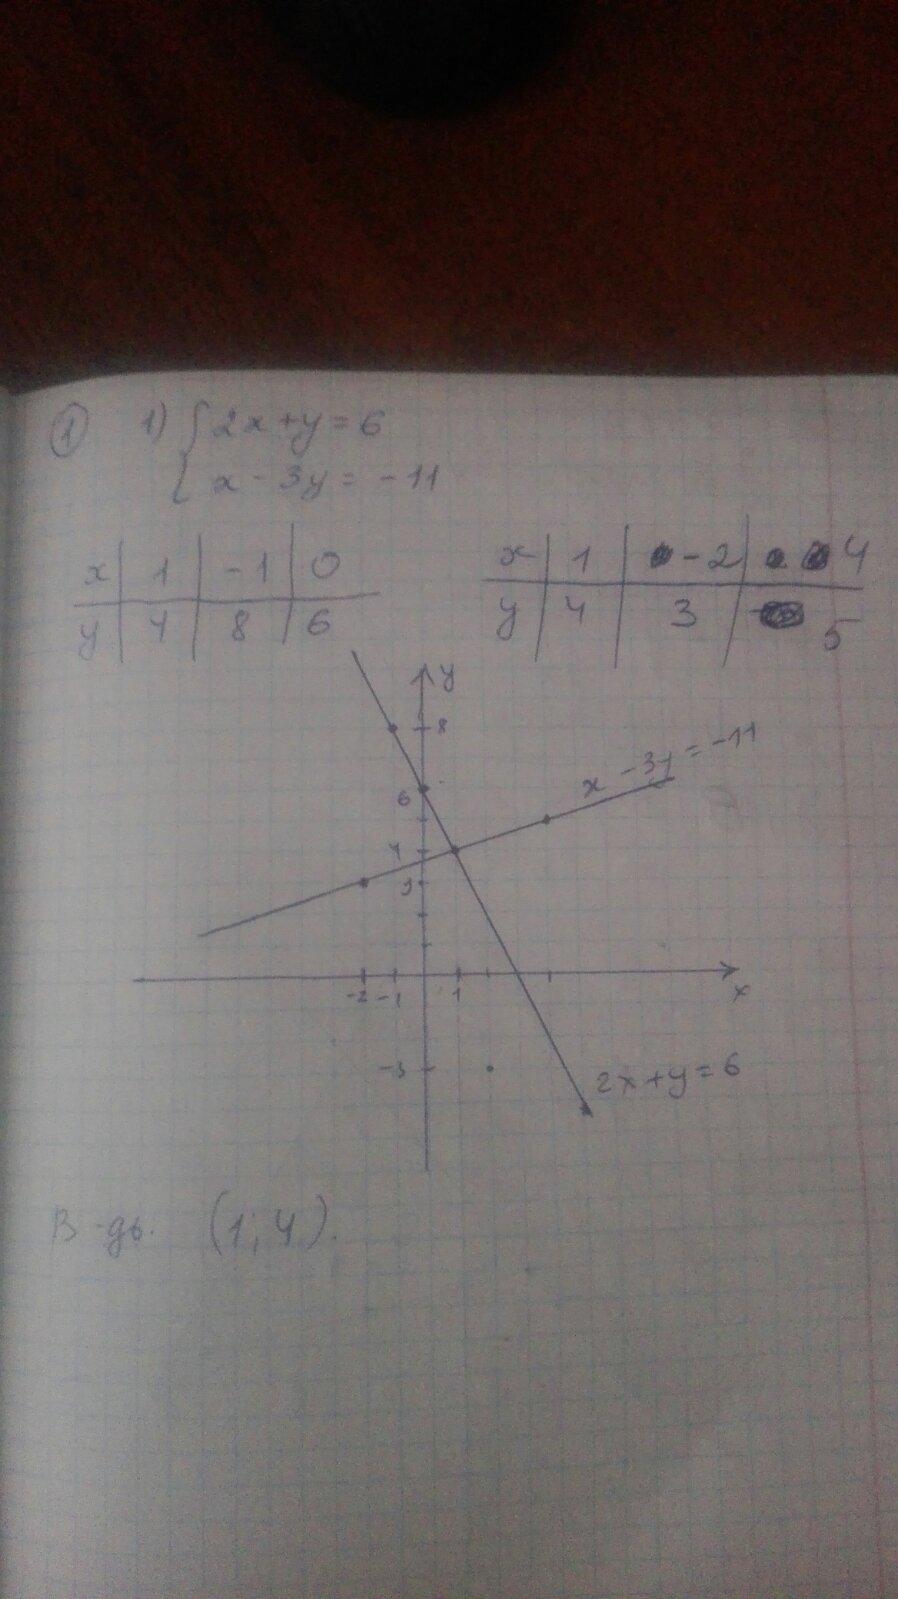 1 1) { 2x+y=6
x-3y=-11
x | 1 | -1 | 0
y | 4 | 8 | 6
x | 1 | -2 | 4
y | 4 | 3 | 5
y
8
x-3y=-11
6
4
3
-2 -1 1
x
-3
2x+y=6
В-дь. (1; 4).